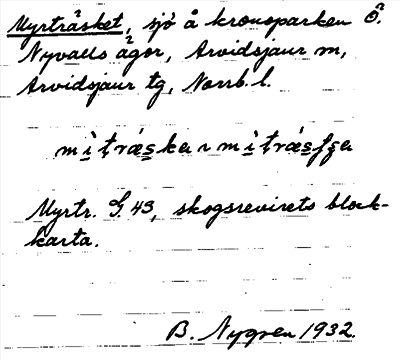 Myrträsket, sjö å kronoparken Ö.
Nyvalls ägor, Arvidsjaur sn,
Arvidsjaur tg, Norrb. l.
Myrtr. G. 43, skogsrevirets block-
karta.
B. Nygren 1932.